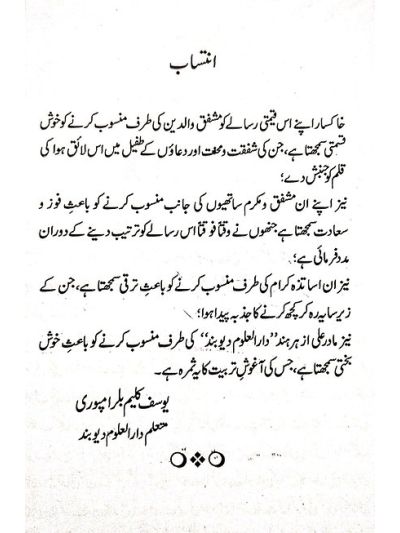 انتساب
خاکسار اپنے اس قیمتی رسالے کو مشفق والدین کی طرف منسوب کرنے کو خوش
قسمتی سمجھتا ہے، جن کی شفقت ومحنت اور دعاؤں کے طفیل میں اس لائق ہوا کی
قلم کو جنبش دے؛
نیز اپنے ان مشفق و مکرم ساتھیوں کی جانب منسوب کرنے کو باعثِ فوز و
سعادت سمجھتا ہے جنھوں نے وقتاً فوقتاً اس رسالے کو ترتیب دینے کے دوران
مدد فرمائی ہے؛
نیز ان اساتذہ کرام کی طرف منسوب کرنے کو باعثِ ترقی سمجھتا ہے، جن کے
زیر سایہ رہ کر کچھ کرنے کا جذبہ پیدا ہوا؛
نیز مادر علمی ازہر ہند ”دارالعلوم دیوبند“ کی طرف منسوب کرنے کو باعثِ خوش
بختی سمجھتا ہے، جس کی آغوشِ تربیت کا یہ ثمرہ ہے۔
یوسف کلیم بلرامپوری
متعلم دارالعلوم دیوبند